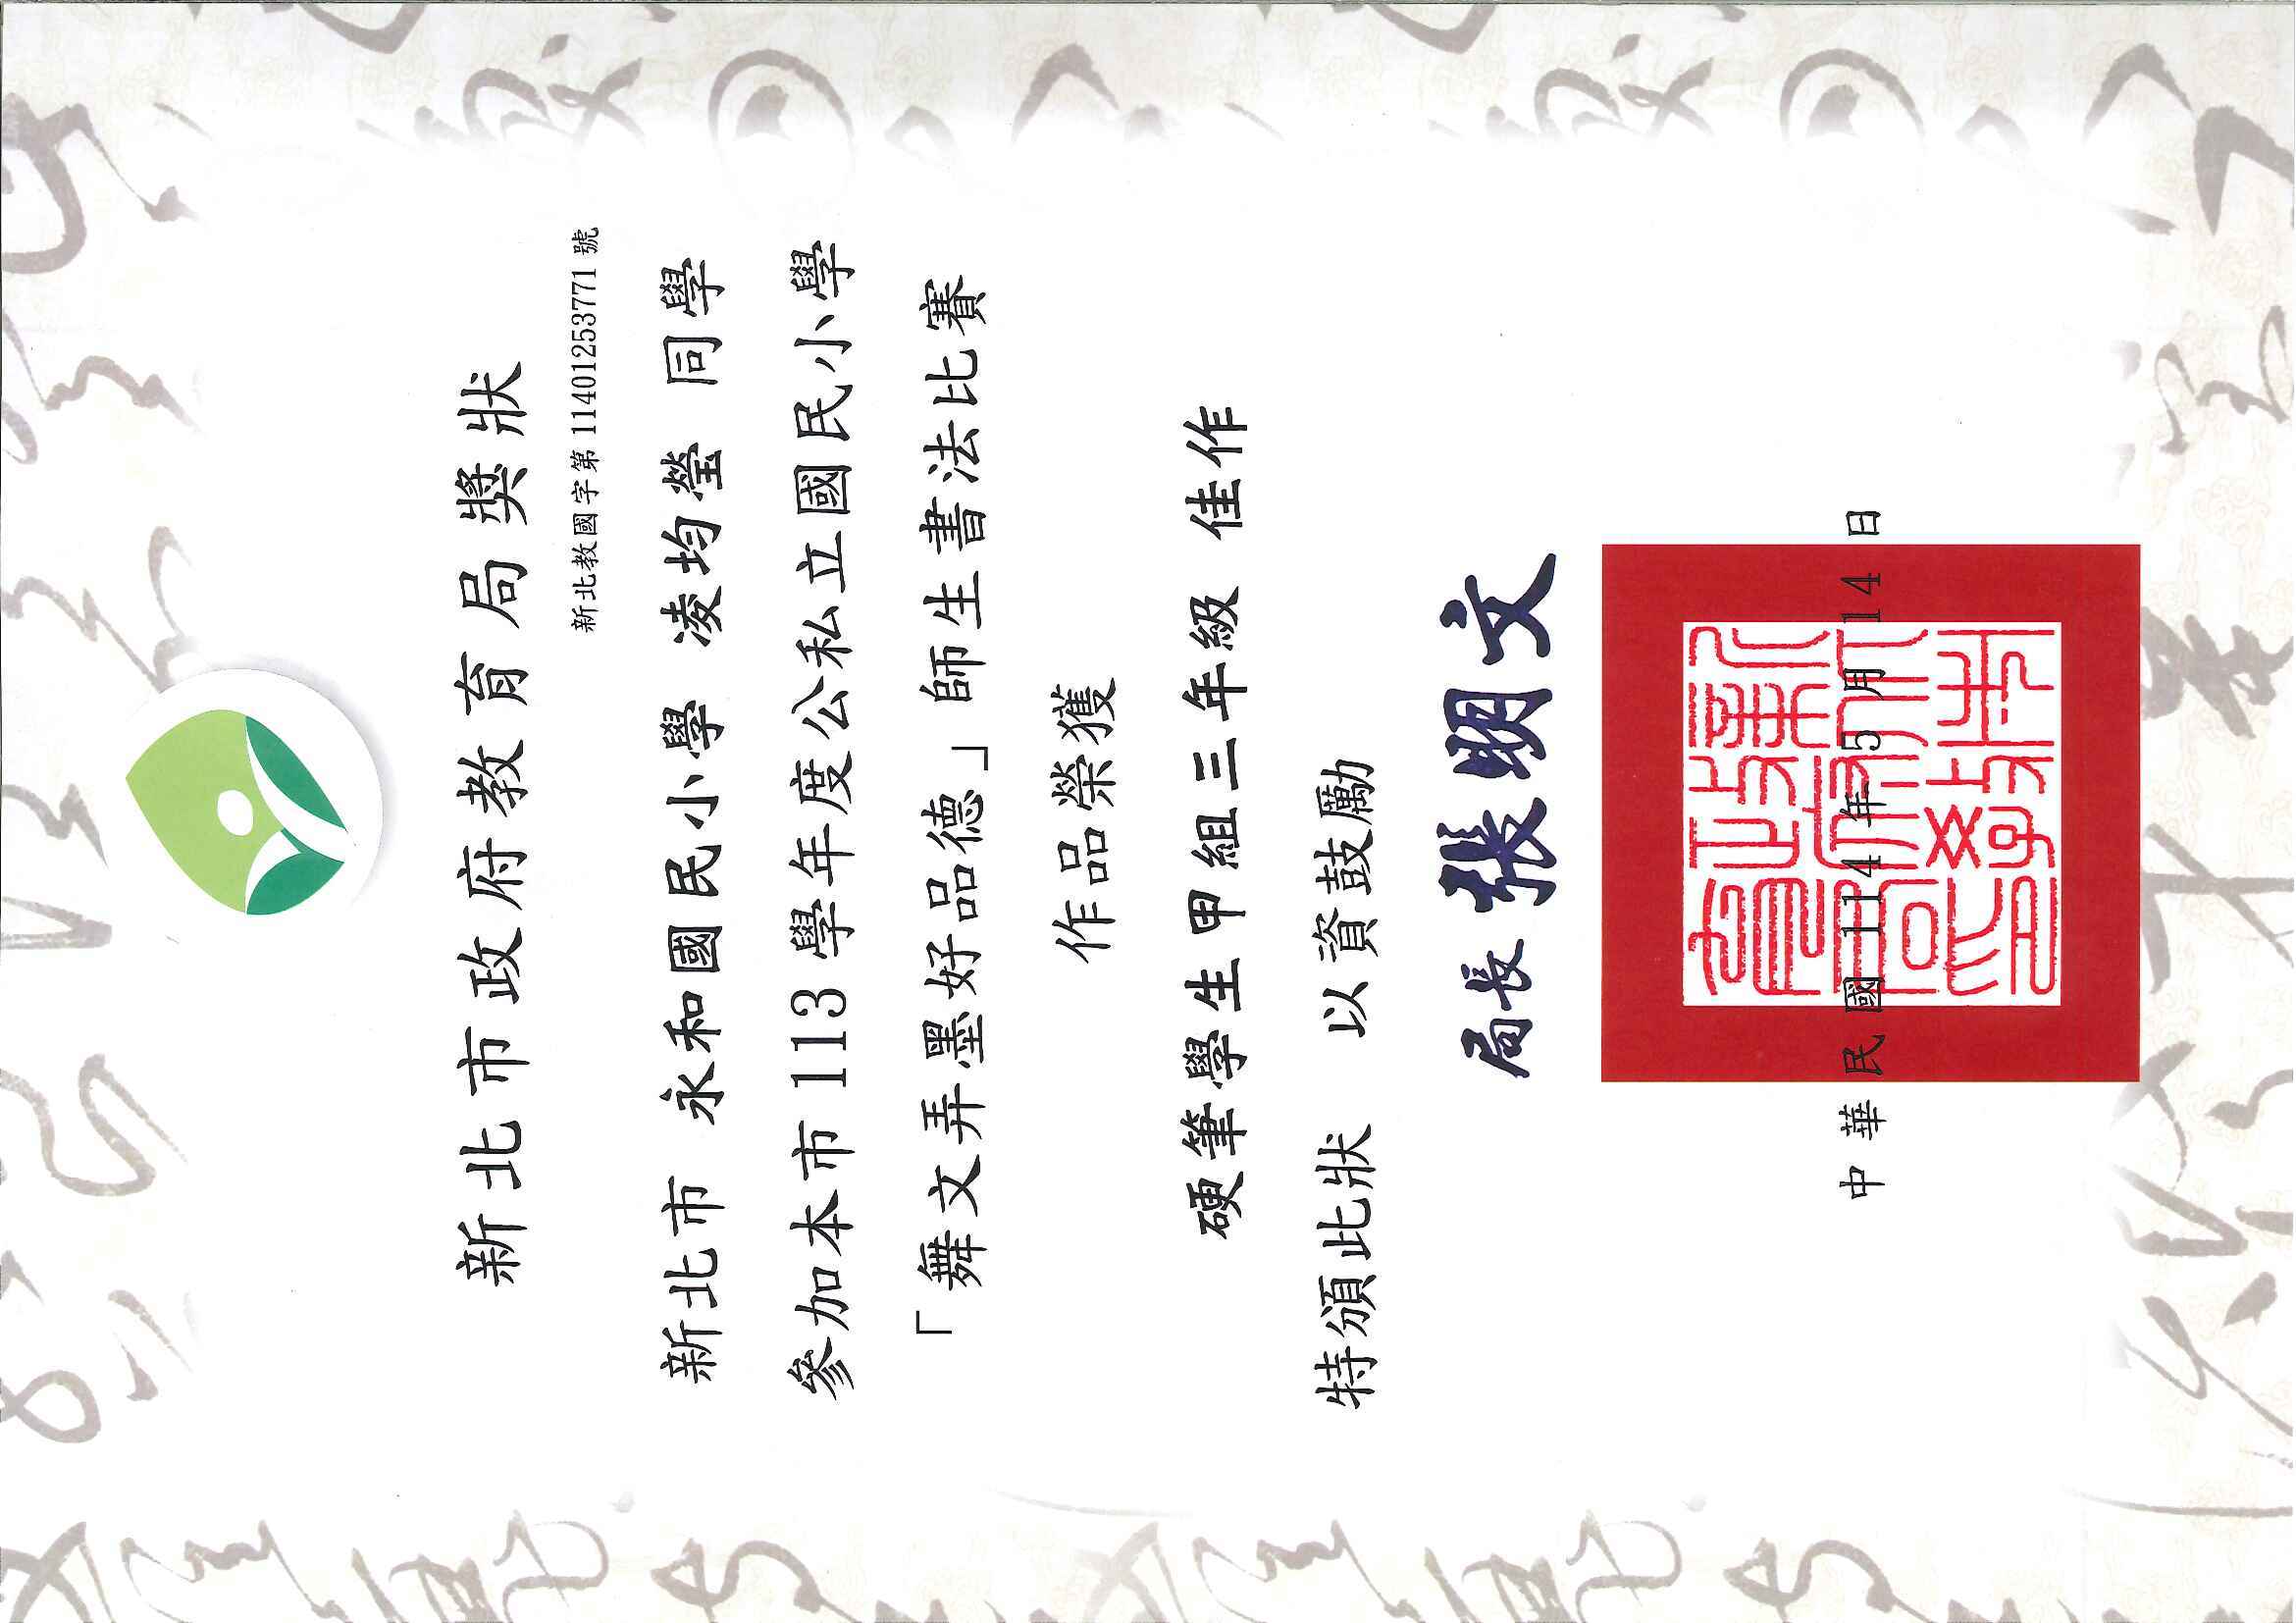 新北市政府教育局獎狀
新北教國字第 11401253771 號
新北市 永和國民小學 凌均瑩 同學
參加本市 113 學年度公私立國民小學
「舞文弄墨好品德」師生書法比賽
作品榮獲
硬筆學生甲組三年級 佳作
特頒此狀 以資鼓勵
局長 張明文
中華民國 114 年 5 月 14 日